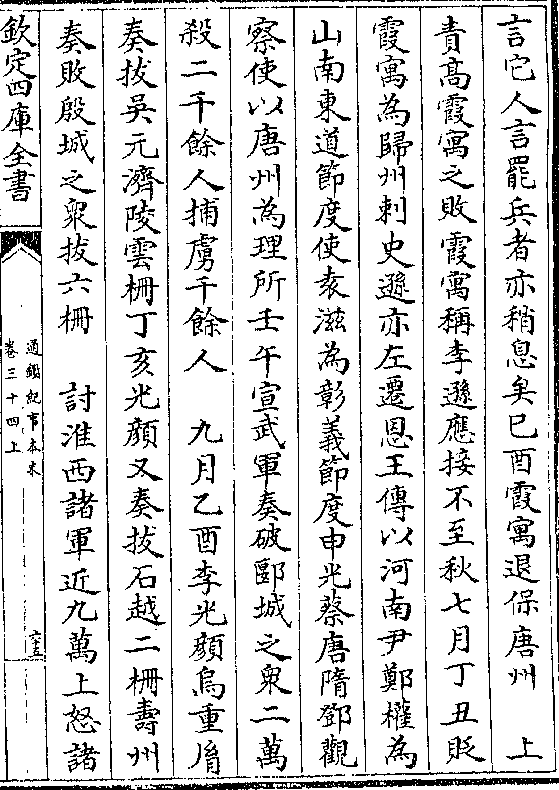 言它人言罷兵者亦稍息矣己酉霞寓退保唐州　上
責髙霞寓之敗霞寓稱李遜應接不至秋七月丁丑貶
霞寓為歸州刺史遜亦左遷恩王傅以河南尹鄭權為
山南東道節度使袁滋為彰義節度申光蔡唐隋鄧觀
察使以唐州為理所壬午宣武軍奏破郾城之衆二萬
殺二千餘人捕虜千餘人　九月乙酉李光顔烏重胤
奏拔吳元濟陵雲柵丁亥光顔又奏拔石越二柵壽州
奏敗殷城之衆拔六柵　討淮西諸軍近九萬上怒諸
欽定四庫全書
通鑑紀事本末
卷三十四上
六十五